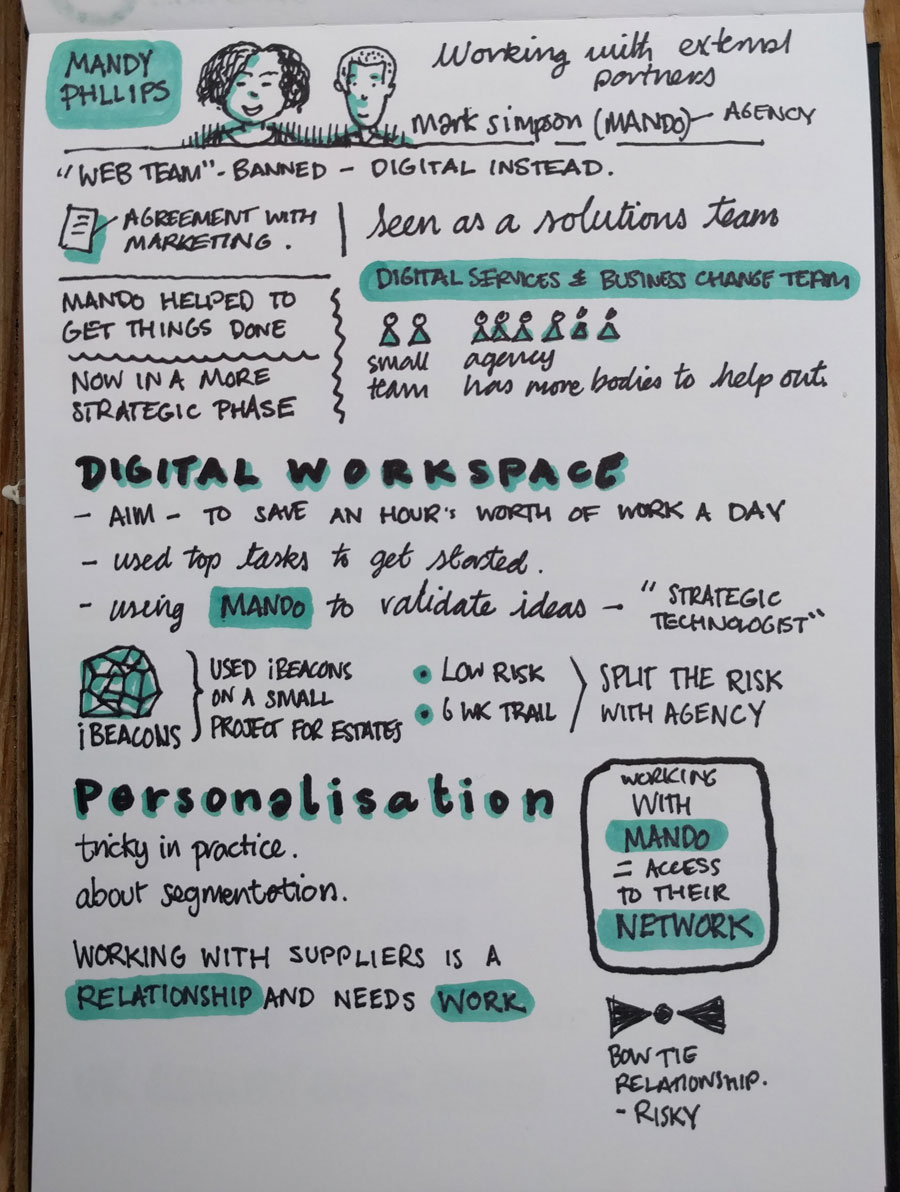 MANDY
PHLLIPS
Working with external
partners
Mark Simpson (MANDO) - AGENCY
"WEB TEAM" - BANNED - DIGITAL INSTEAD.
AGREEMENT WITH
MARKETING.
seen as a solutions team
DIGITAL SERVICES & BUSINESS CHANGE TEAM
MANDO HELPED TO
GET THINGS DONE
NOW IN A MORE
STRATEGIC PHASE
small
team
agency
has more bodies to help out.
DIGITAL WORKSPACE
- AIM - TO SAVE AN HOUR'S WORTH OF WORK A DAY
- used top tasks to get started.
- using MANDO to validate ideas - "STRATEGIC
TECHNOLOGIST"
iBEACONS
USED iBEACONS
ON A SMALL
PROJECT FOR ESTATES
• LOW RISK
• 6 WK TRAIL
SPLIT THE RISK
WITH AGENCY
Personalisation
tricky in practice.
about segmentation.
WORKING WITH SUPPLIERS IS A
RELATIONSHIP AND NEEDS WORK
WORKING
WITH
MANDO
= ACCESS
TO THEIR
NETWORK
BOW TIE
RELATIONSHIP.
- RISKY